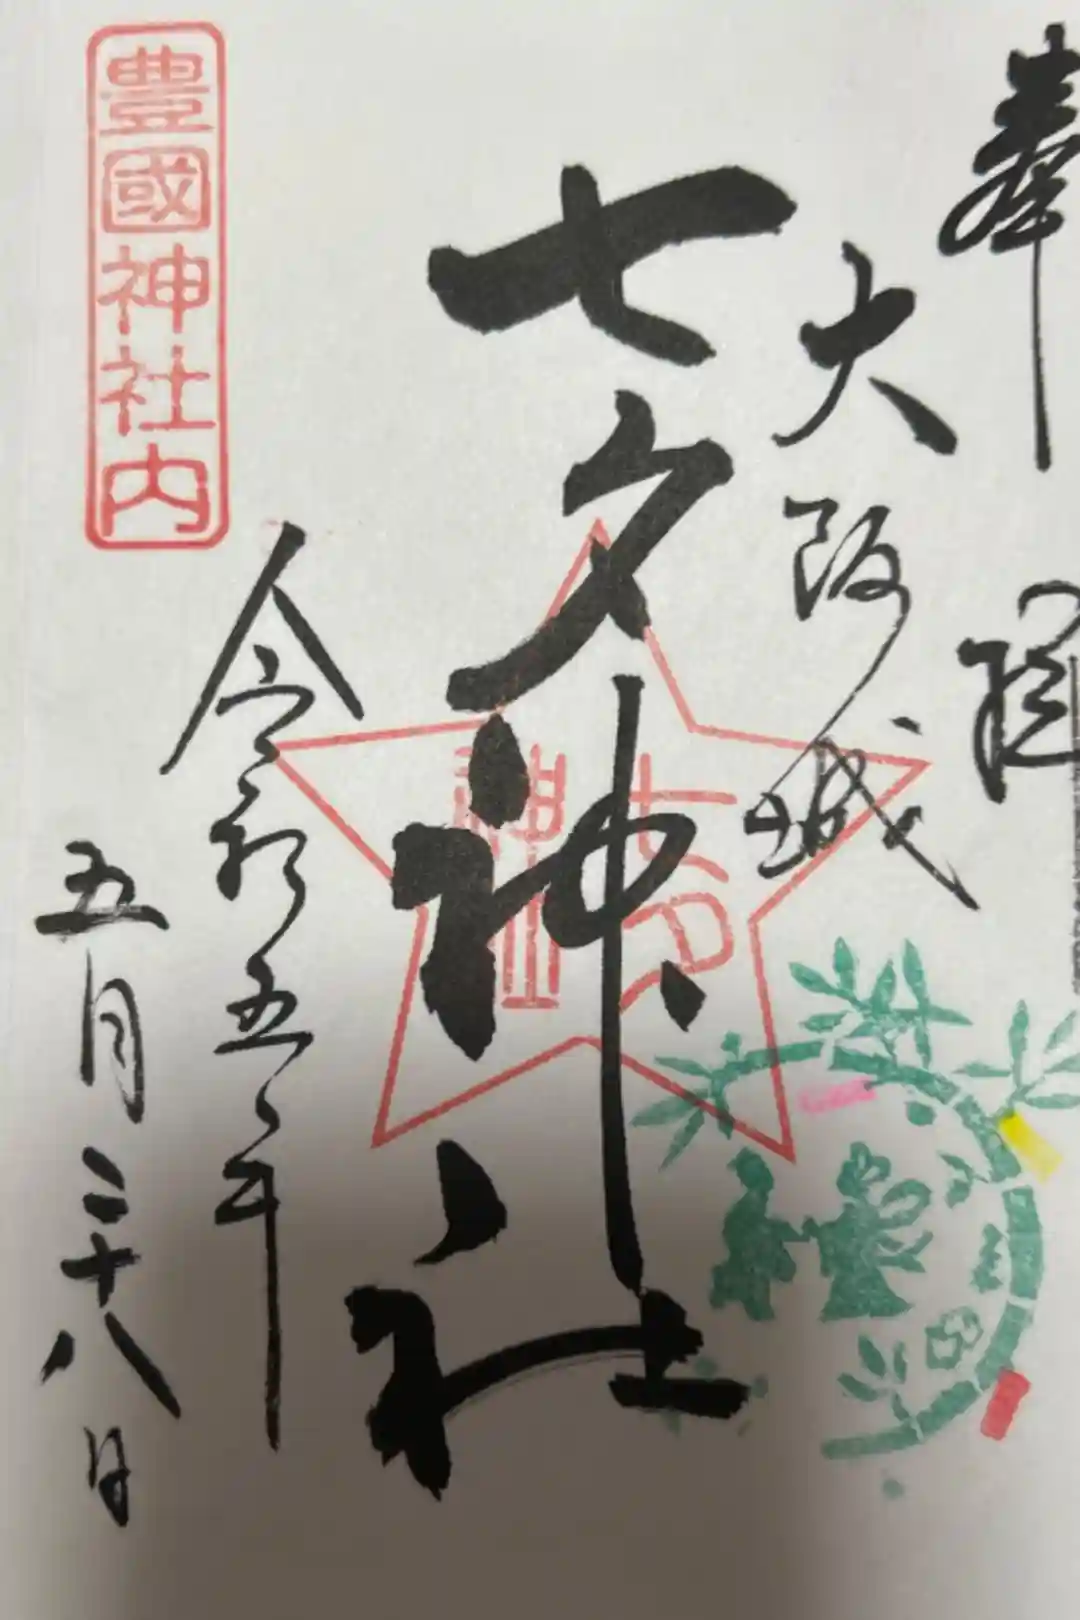 奉拝
大阪城
七夕神社
七夕
神社
令和五年
五月二十八日
豊國神社内